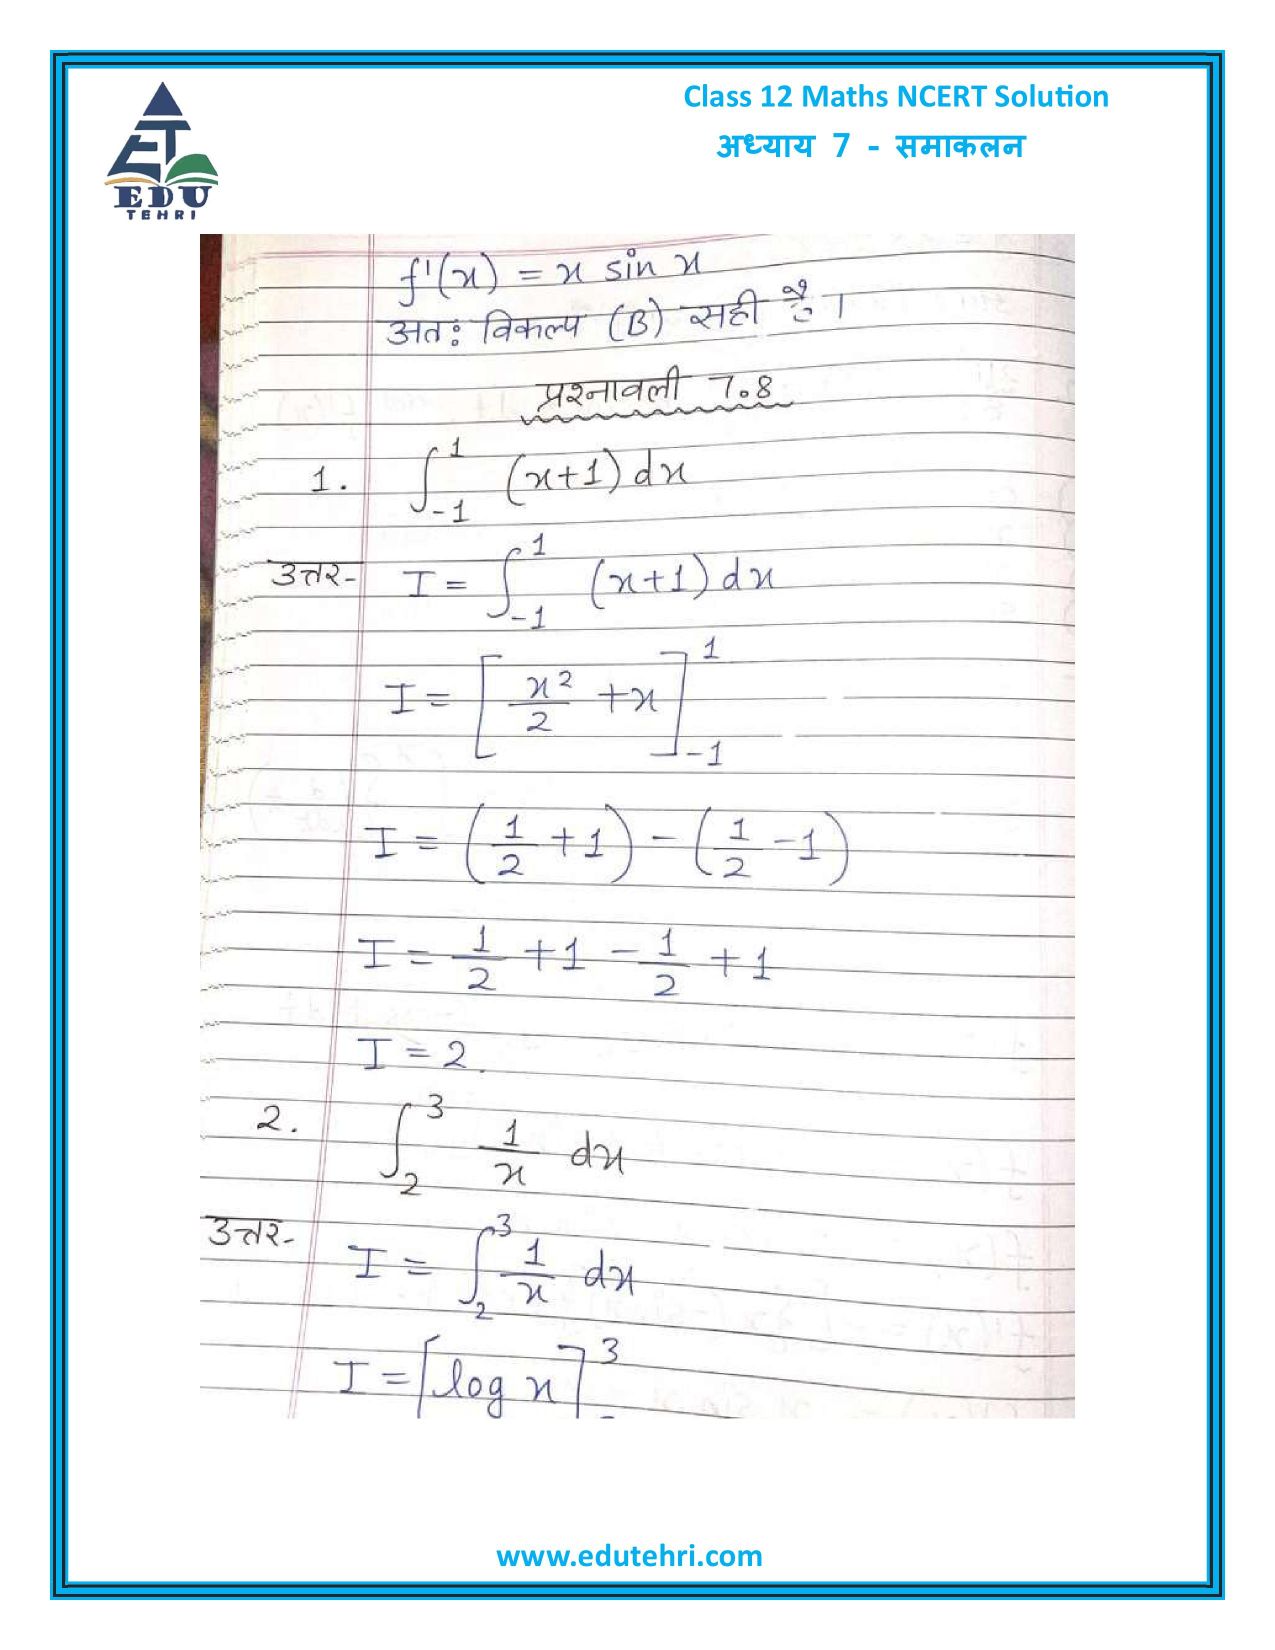 Class 12 Maths NCERT Solution
अध्याय 7 - समाकलन
ET
EDU
TEHRI
f'(x) = x sin x
अतः विकल्प (B) सही है।
प्रश्नावली 7.8
1. ∫_{-1}^{1} (x+1) dx
उत्तर- I = ∫_{-1}^{1} (x+1) dx
I = [x²/2 + x]_{-1}^{1}
I = (1/2 + 1) - (1/2 - 1)
I = 1/2 + 1 - 1/2 + 1
I = 2.
2. ∫_{2}^{3} 1/x dx
उत्तर- I = ∫_{2}^{3} 1/x dx
I = [log x]^{3}
www.edutehri.com